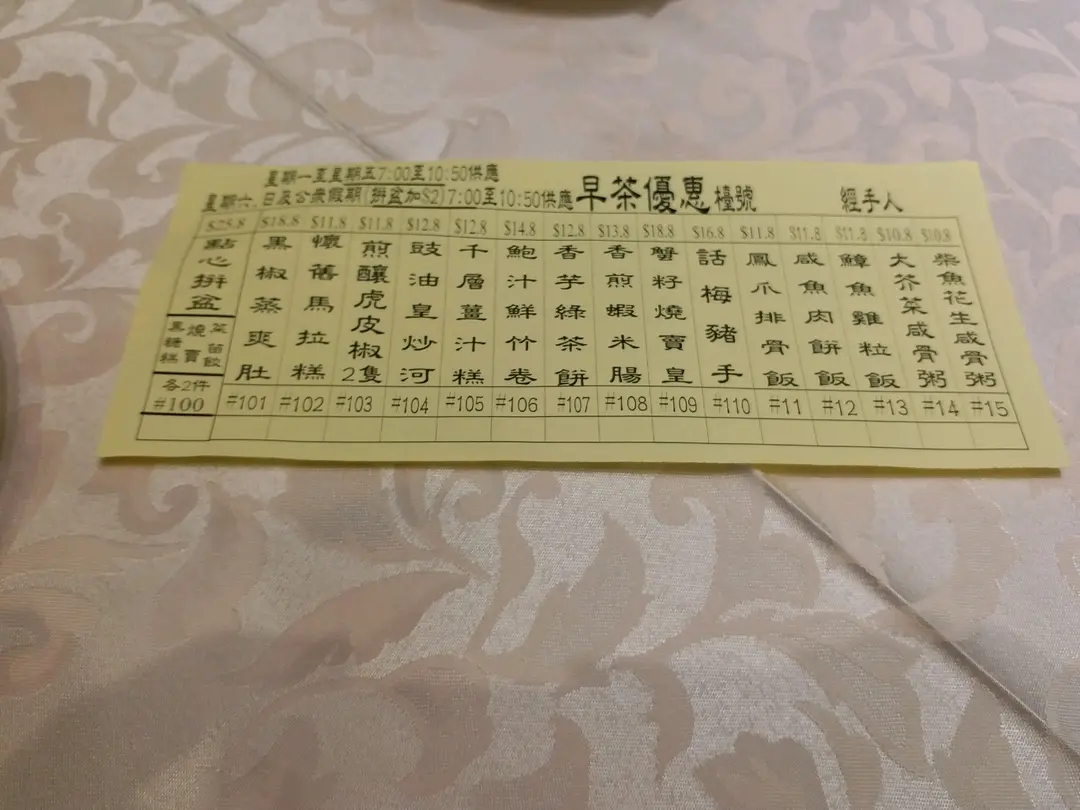 星期一至星期五7:00至10:50供應
星期六、日及公衆假期(拼盆加$2)7:00至10:50供應
早茶優惠
檯號
經手人
$25.8 $18.8 $11.8 $11.8 $12.8 $12.8 $14.8 $12.8 $13.8 $18.8 $16.8 $11.8 $11.8 $11.8 $10.8 $10.8
點心拼盆
黑糖糕
燒賣
菜苗餃
各2件
黑椒蒸爽肚
懷舊馬拉糕
煎釀虎皮椒2隻
豉油皇炒河
千層薑汁糕
鮑汁鮮竹卷
香芋綠茶餅
香煎蝦米腸
蟹籽燒賣皇
話梅豬手
鳳爪排骨飯
咸魚肉餅飯
鱆魚雞粒飯
大芥菜咸骨粥
柴魚花生咸骨粥
#100 #101 #102 #103 #104 #105 #106 #107 #108 #109 #110 #11 #12 #13 #14 #15